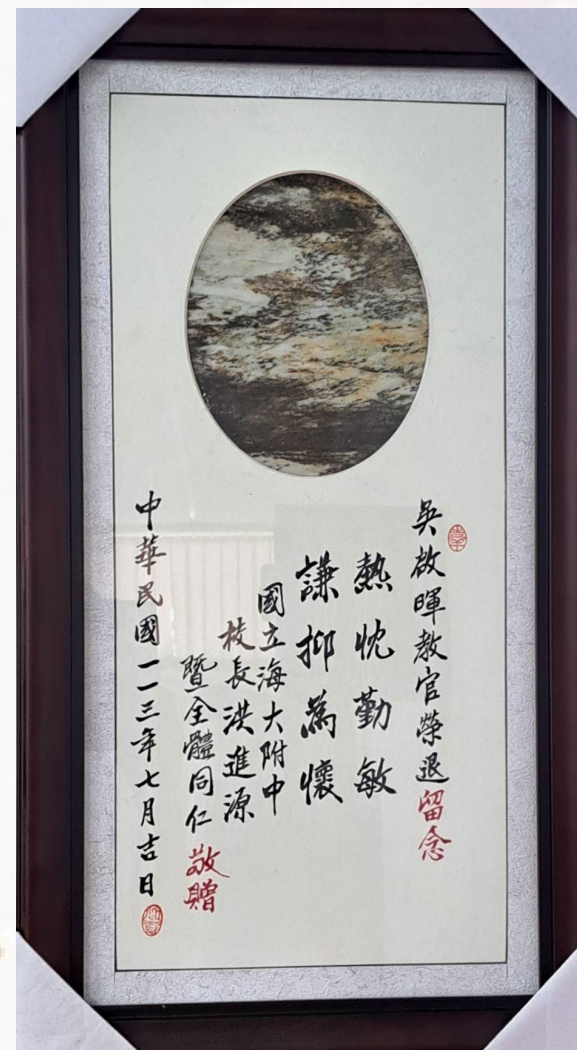 吳啟暉教官榮退留念
熱忱勤敏
謙抑為懷
國立海大附中
校長洪進源
暨全體同仁敬贈
中華民國一一三年七月吉日